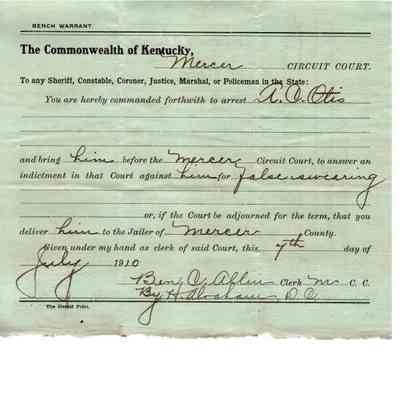 BENCH WARRANT.
The Commonwealth of Kentucky,
Mercer CIRCUIT COURT.
To any Sheriff, Constable, Coroner, Justice, Marshal, or Policeman in the State:
You are hereby commanded forthwith to arrest A. C. Otis
and bring him before the Mercer Circuit Court, to answer an
indictment in that Court against him for false swearing
or, if the Court be adjourned for the term, that you
deliver him to the Jailer of Mercer County.
Given under my hand as clerk of said Court, this, 7th day of
July 1910
Ben C. Allin Clerk M C. C.
By H. D. C.